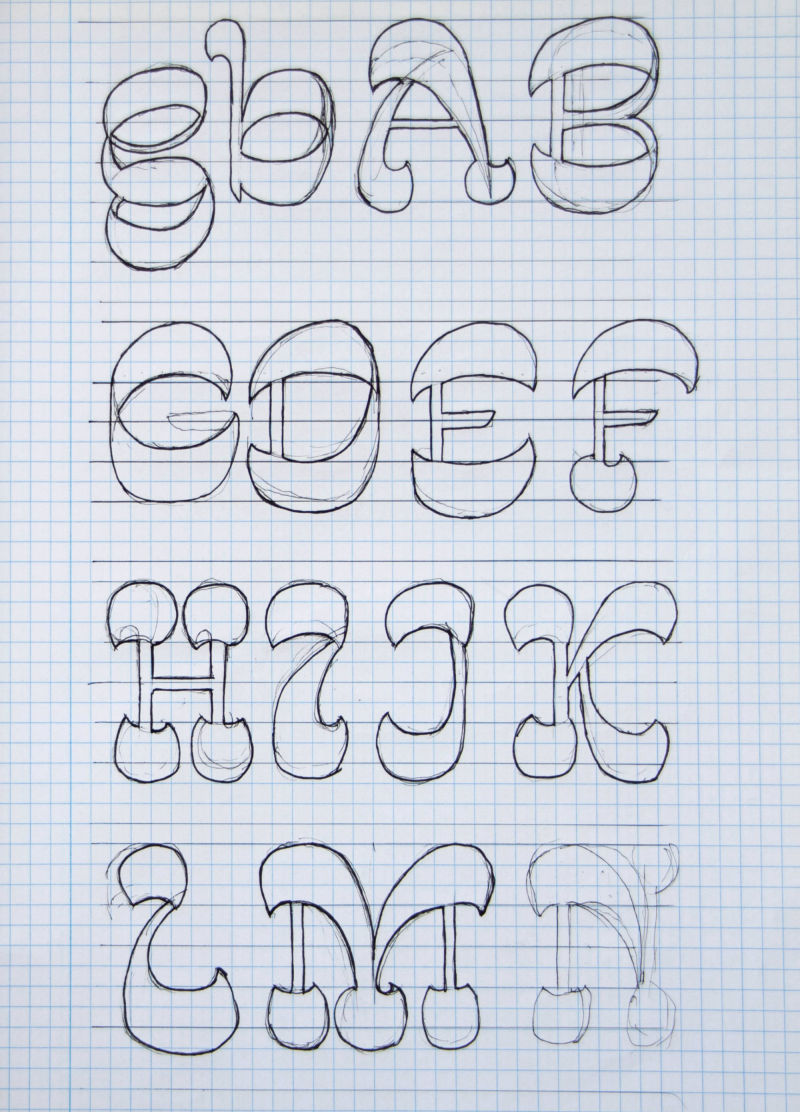 gbAB
GDEF
HIJK
LMN